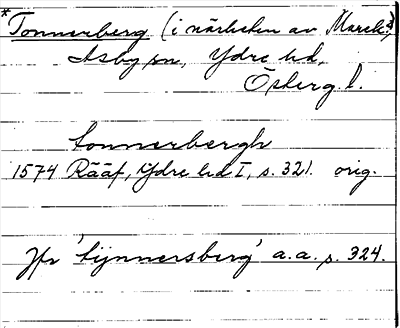 *Tonnerberg (i närheten av Marek?)
Asby sn, Ydre hd,
Österg. l.
tonnerbergh
1574 Rääf, Ydre hd I, s. 321. orig.
Jfr 'tijnnersberg' a.a. s. 324.